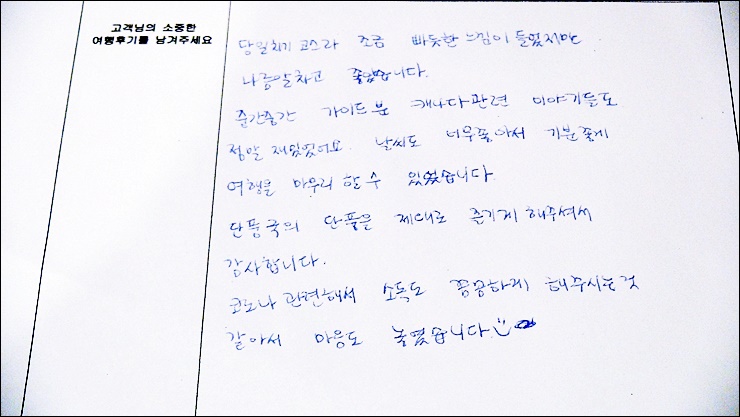 고객님의 소중한
여행후기를 남겨주세요
당일치기 코스라 조금 빠듯한 느낌이 들었지만
나름알차고 좋았습니다.
중간중간 가이드분 캐나다관련 이야기들도
정말 재밌었어요. 날씨도 너무좋아서 기분좋게
여행을 마무리 할 수 있었습니다
단풍국의 단풍을 제대로 즐기게 해주셔서
감사합니다.
코로나 관련해서 소독도 꼼꼼하게 해주시는것
같아서 마음도 놓였습니다